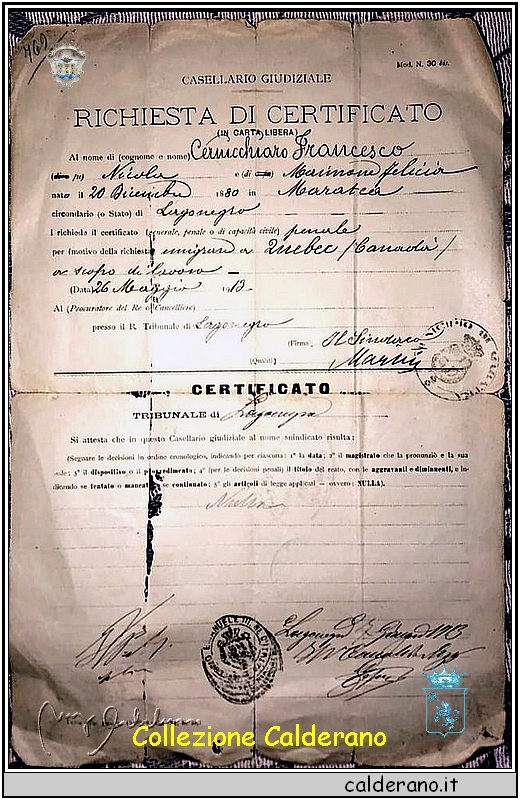 769
Mod. N. 30 bis.
CASELLARIO GIUDIZIALE
RICHIESTA DI CERTIFICATO
(IN CARTA LIBERA)
Al nome di (cognome e nome) Cernicchiaro Francesco
Nicola e (di Maimone Felicia
nato il 20 Dicembre 1880 in Maratea
circondario (o Stato) di Lagonegro
I richiedo il certificato (generale, penale o di capacità civile) penale
per (motivo della richiesta) emigrare a Quebec (Canadà)
a scopo di lavoro —
(Data) 26 Maggio 1913 -
Al (Procuratore del Re o Cancelliere)
presso il R. Tribunale di Lagonegro
(Firma) Il Sindaco
(Qualità)
CERTIFICATO
TRIBUNALE di Lagonegro
Si attesta che in questo Casellario giudiziale al nome suindicato risulta:
(Segnare le decisioni in ordine cronologico, indicando per ciascuna: 1° la data; 2° il magistrato che la pronunziò e la sua
sede; 3° il dispositivo o il provvedimento; 4° (per le decisioni penali) il titolo del reato, con le aggravanti e diminuenti, e in-
dicando se tentato o mancato, se continuato; 5° gli articoli di legge applicati — ovvero: NULLA).
Nulla
Lagonegro 1913
Collezione Calderano
calderano.it